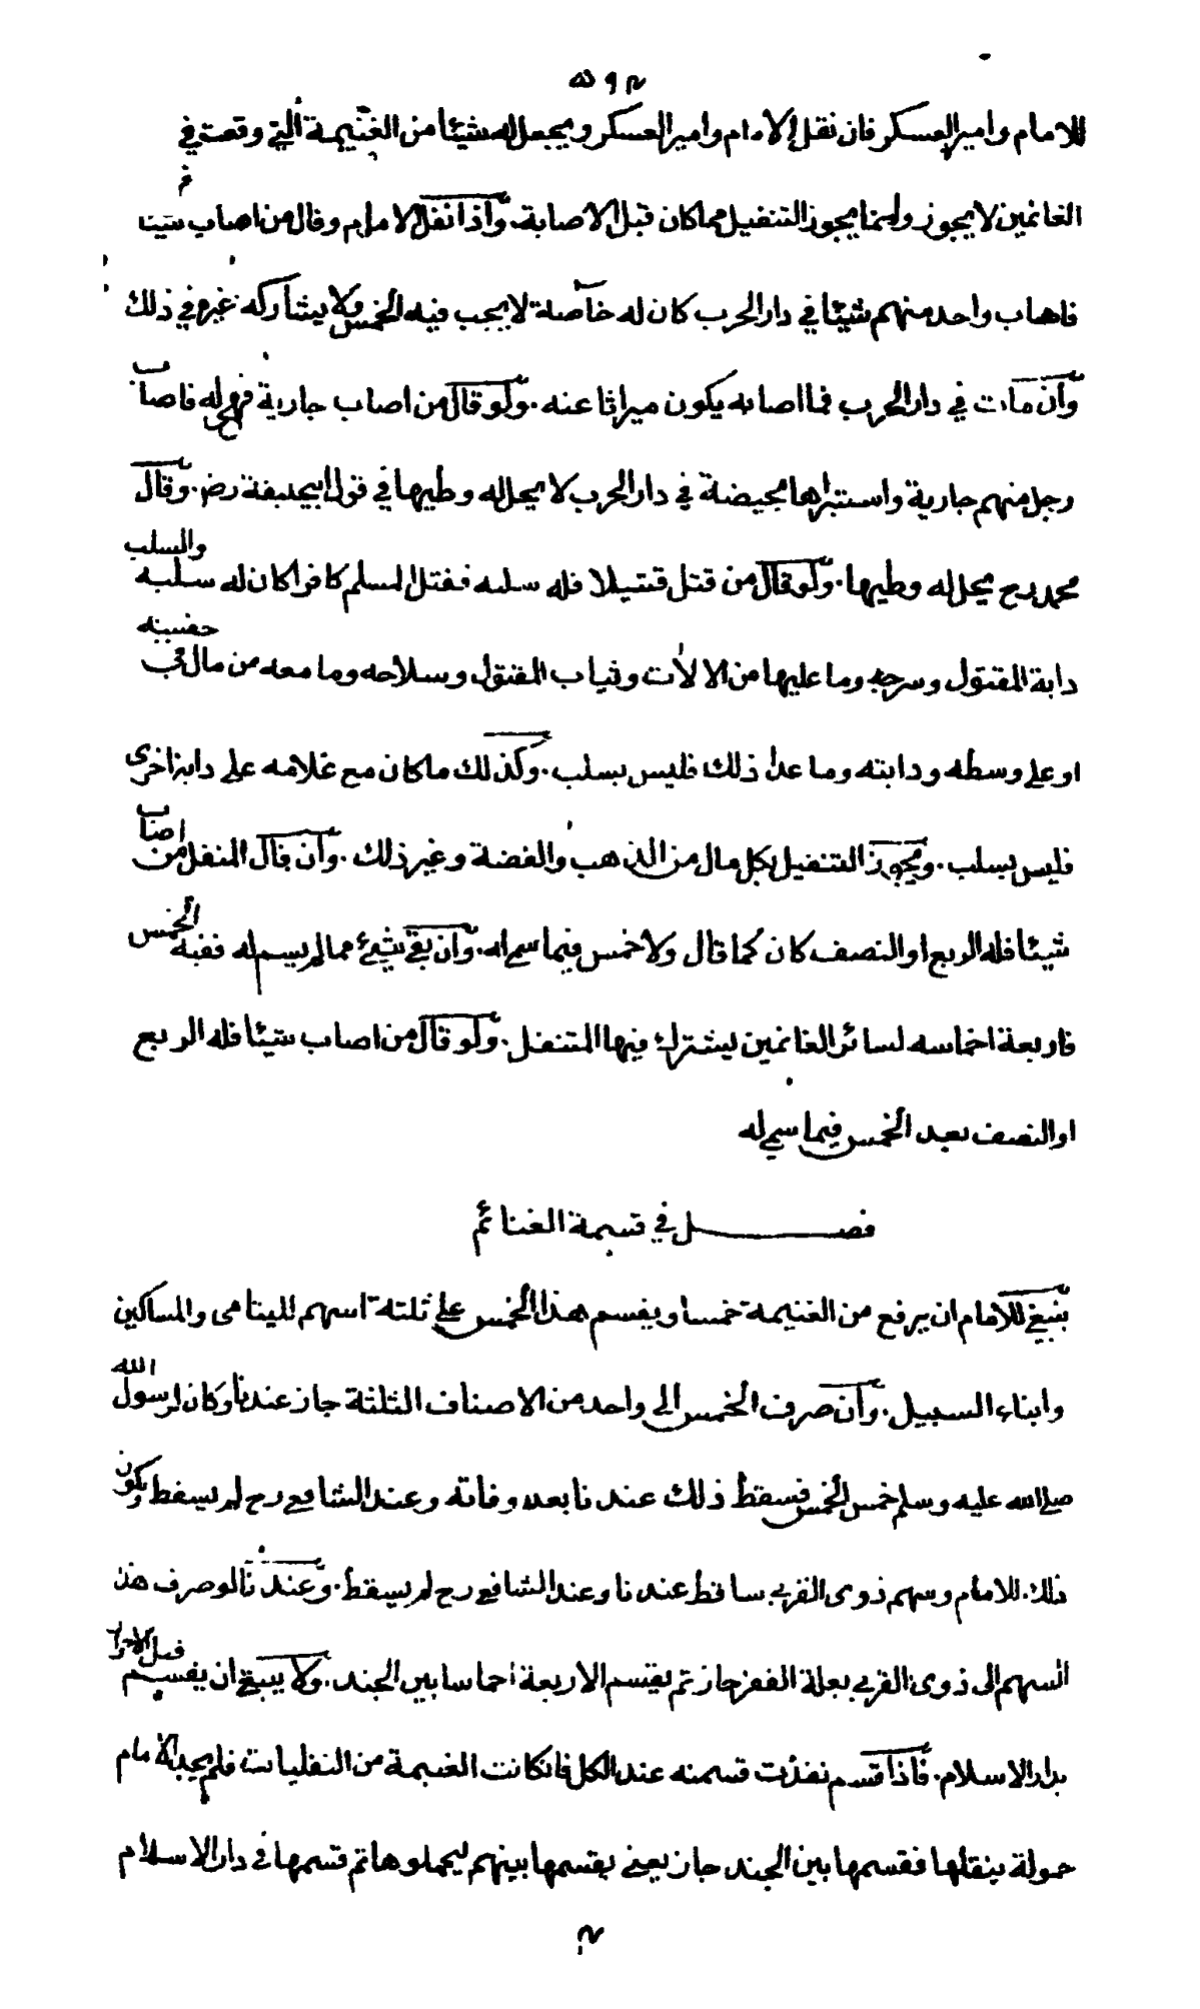 للامام وامير العسكر فان نقل الامام وامير العسكر ويجعل له شيئا من الغنيمة التي وقعت في
الغانمين لا يجوز وانما يجوز التنفيل مما كان قبل الاصابة. واذا نفل الامام وقال من اصاب شيئا
فاصاب واحد منهم شيئا في دار الحرب كان له خاصة لا يجب فيه الخمس ولا يشاركه غيره في ذلك
وان مات في دار الحرب فما اصابه يكون ميراثا عنه. ولو قال من اصاب جارية فهي له فاصاب
رجل منهم جارية واستبراها بحيضة في دار الحرب لا يحل له وطيها في قول ابيحنيفة رض. وقال
محمد رح يحل له وطيها. ولو قال من قتل قتيلا فله سلبه فقتل المسلم كافرا كان له سلبه والسلب
دابة المقتول وسرجه وما عليها من الالات وثياب المقتول وسلاحه وما معه من مال في حقيبته
او على وسطه ودابته وما عدا ذلك فليس بسلب. وكذلك ما كان مع غلامه على دابة اخرى
فليس بسلب. ويجوز التنفيل بكل مال من الذهب والفضة وغير ذلك. وان قال المنفل من اصاب
شيئا فله الربع او النصف كان كما قال ولا خمس فيما سمى له. وان بقي شيئ مما لم يسم له ففيه الخمس
فاربعة اخماسه لسائر الغانمين يشترك فيها المتنفل. ولو قال من اصاب شيئا فله الربع
او النصف بعد الخمس فيما سمى له
فصل في قسمة الغنائم
ينبغي للامام ان يرفع من الغنيمة خمسا ويقسم هذا الخمس على ثلثة اسهم لليتامى والمساكين
وابناء السبيل. وان صرف الخمس الى واحد من الاصناف الثلثة جاز عندنا وكان لرسول الله
صلى الله عليه وسلم خمس الخمس فسقط ذلك عندنا بعد وفاته وعند الشافعي رح لم يسقط ويكون
ذلك للامام وسهم ذوى القربى ساقط عندنا وعند الشافعي رح لم يسقط. وعندنا لو صرف هذا
السهم الى ذوى القربى بعلة الفقر جاز ثم يقسم الاربعة اخماسا بين الجند. ولا ينبغي ان يقسم قبل الاحراز
بدار الاسلام. فاذا قسم نفذت قسمته عند الكل فان كانت الغنيمة من النقليات فلم يجد الامام
حمولة ينقلها فقسمها بين الجند جاز يعنى يقسمها بينهم ليحملوها ثم قسمها في دار الاسلام